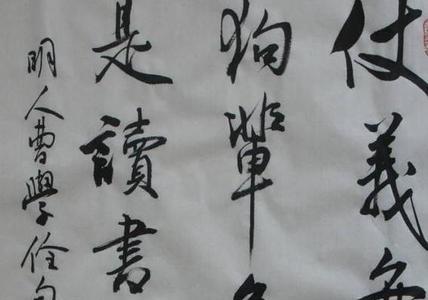 仗義每
狗輩負
是讀書
明人曹學佺句